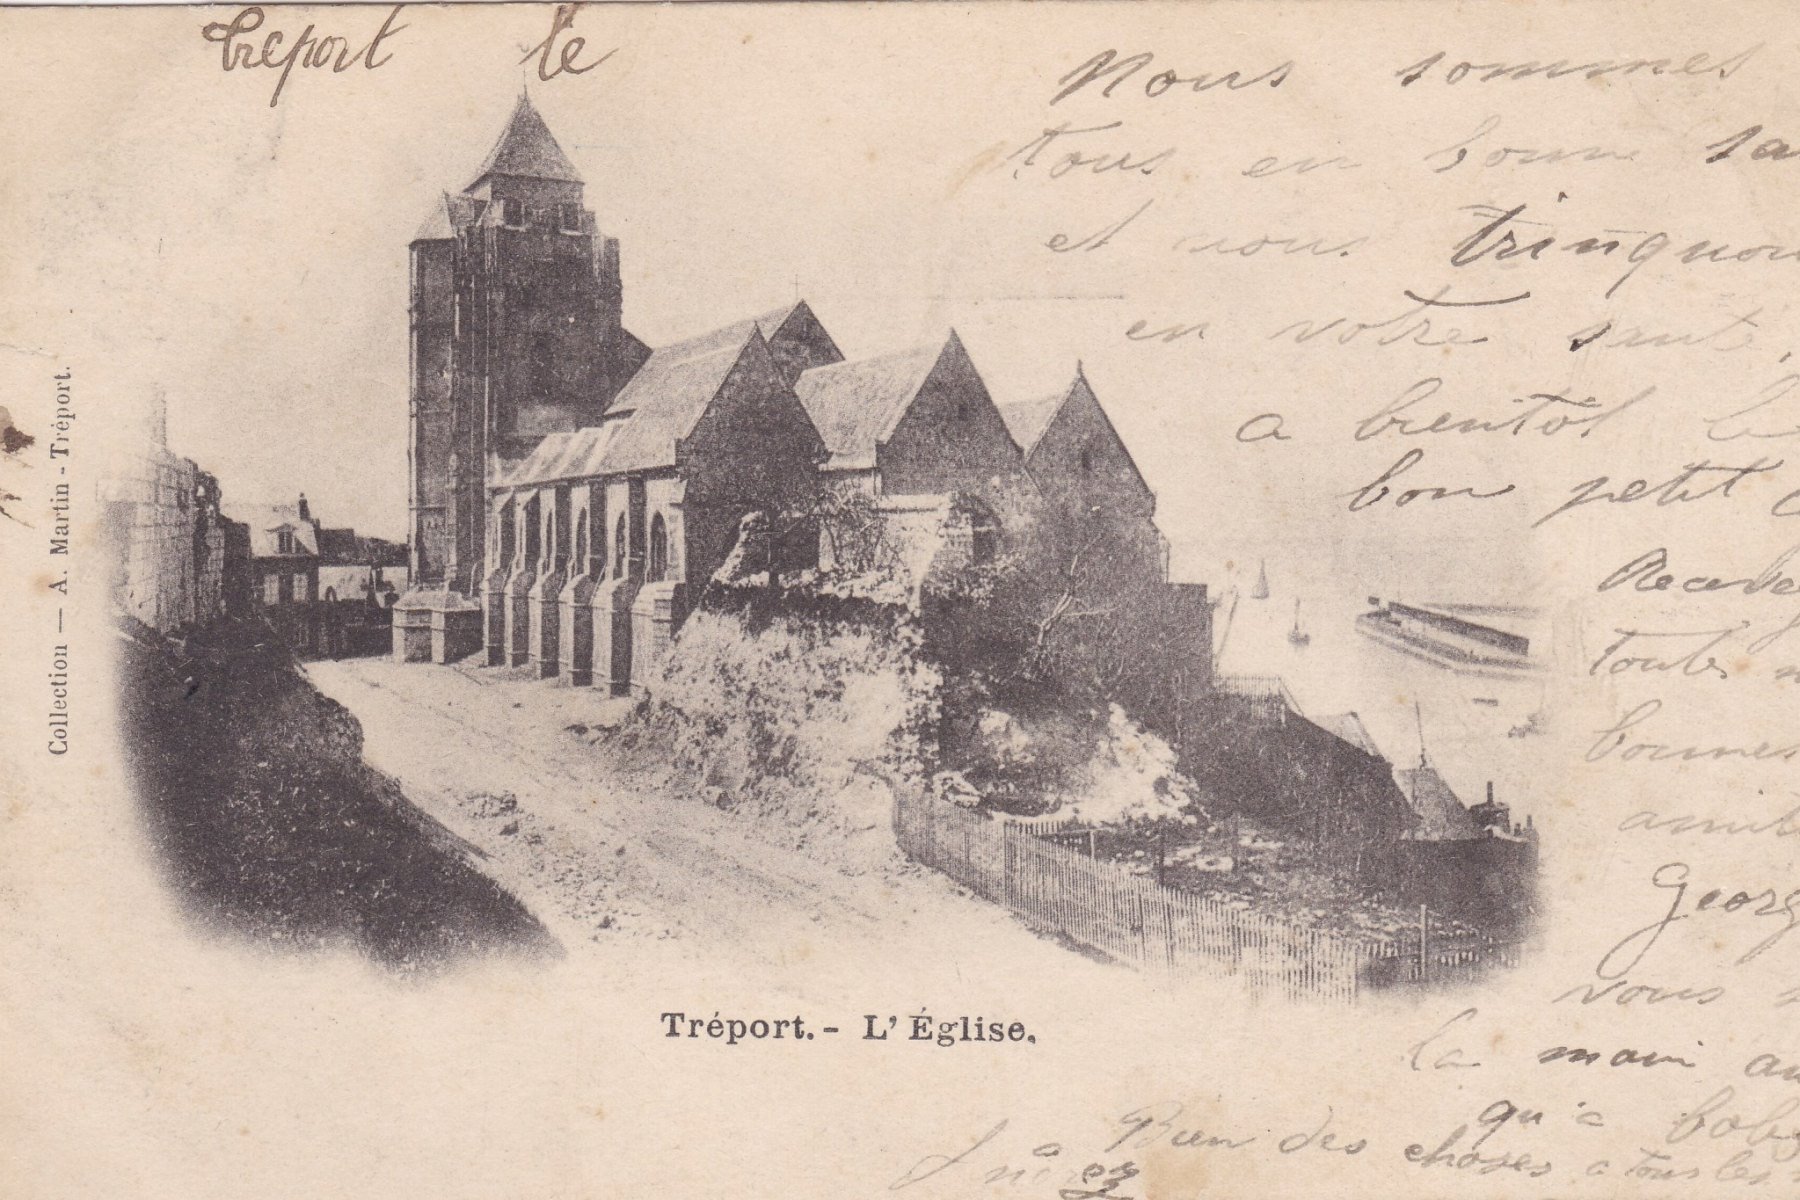 Treport le
Nous sommes
tous en bonne sa
et nous trinquon
en votre santé,
a bientôt le
bon petit
Recevez
toutes
bonnes
amit
Georg
vous
la main au
qu'a bob
Bien des choses a tous les
Collection — A. Martin - Tréport.
Tréport. - L'Église.